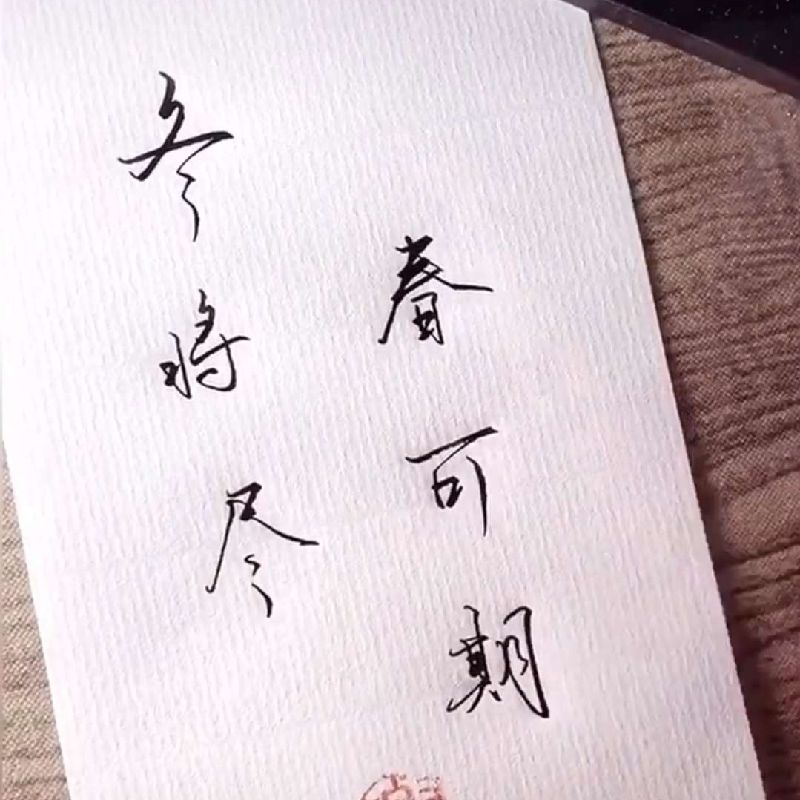 冬将尽
春可期